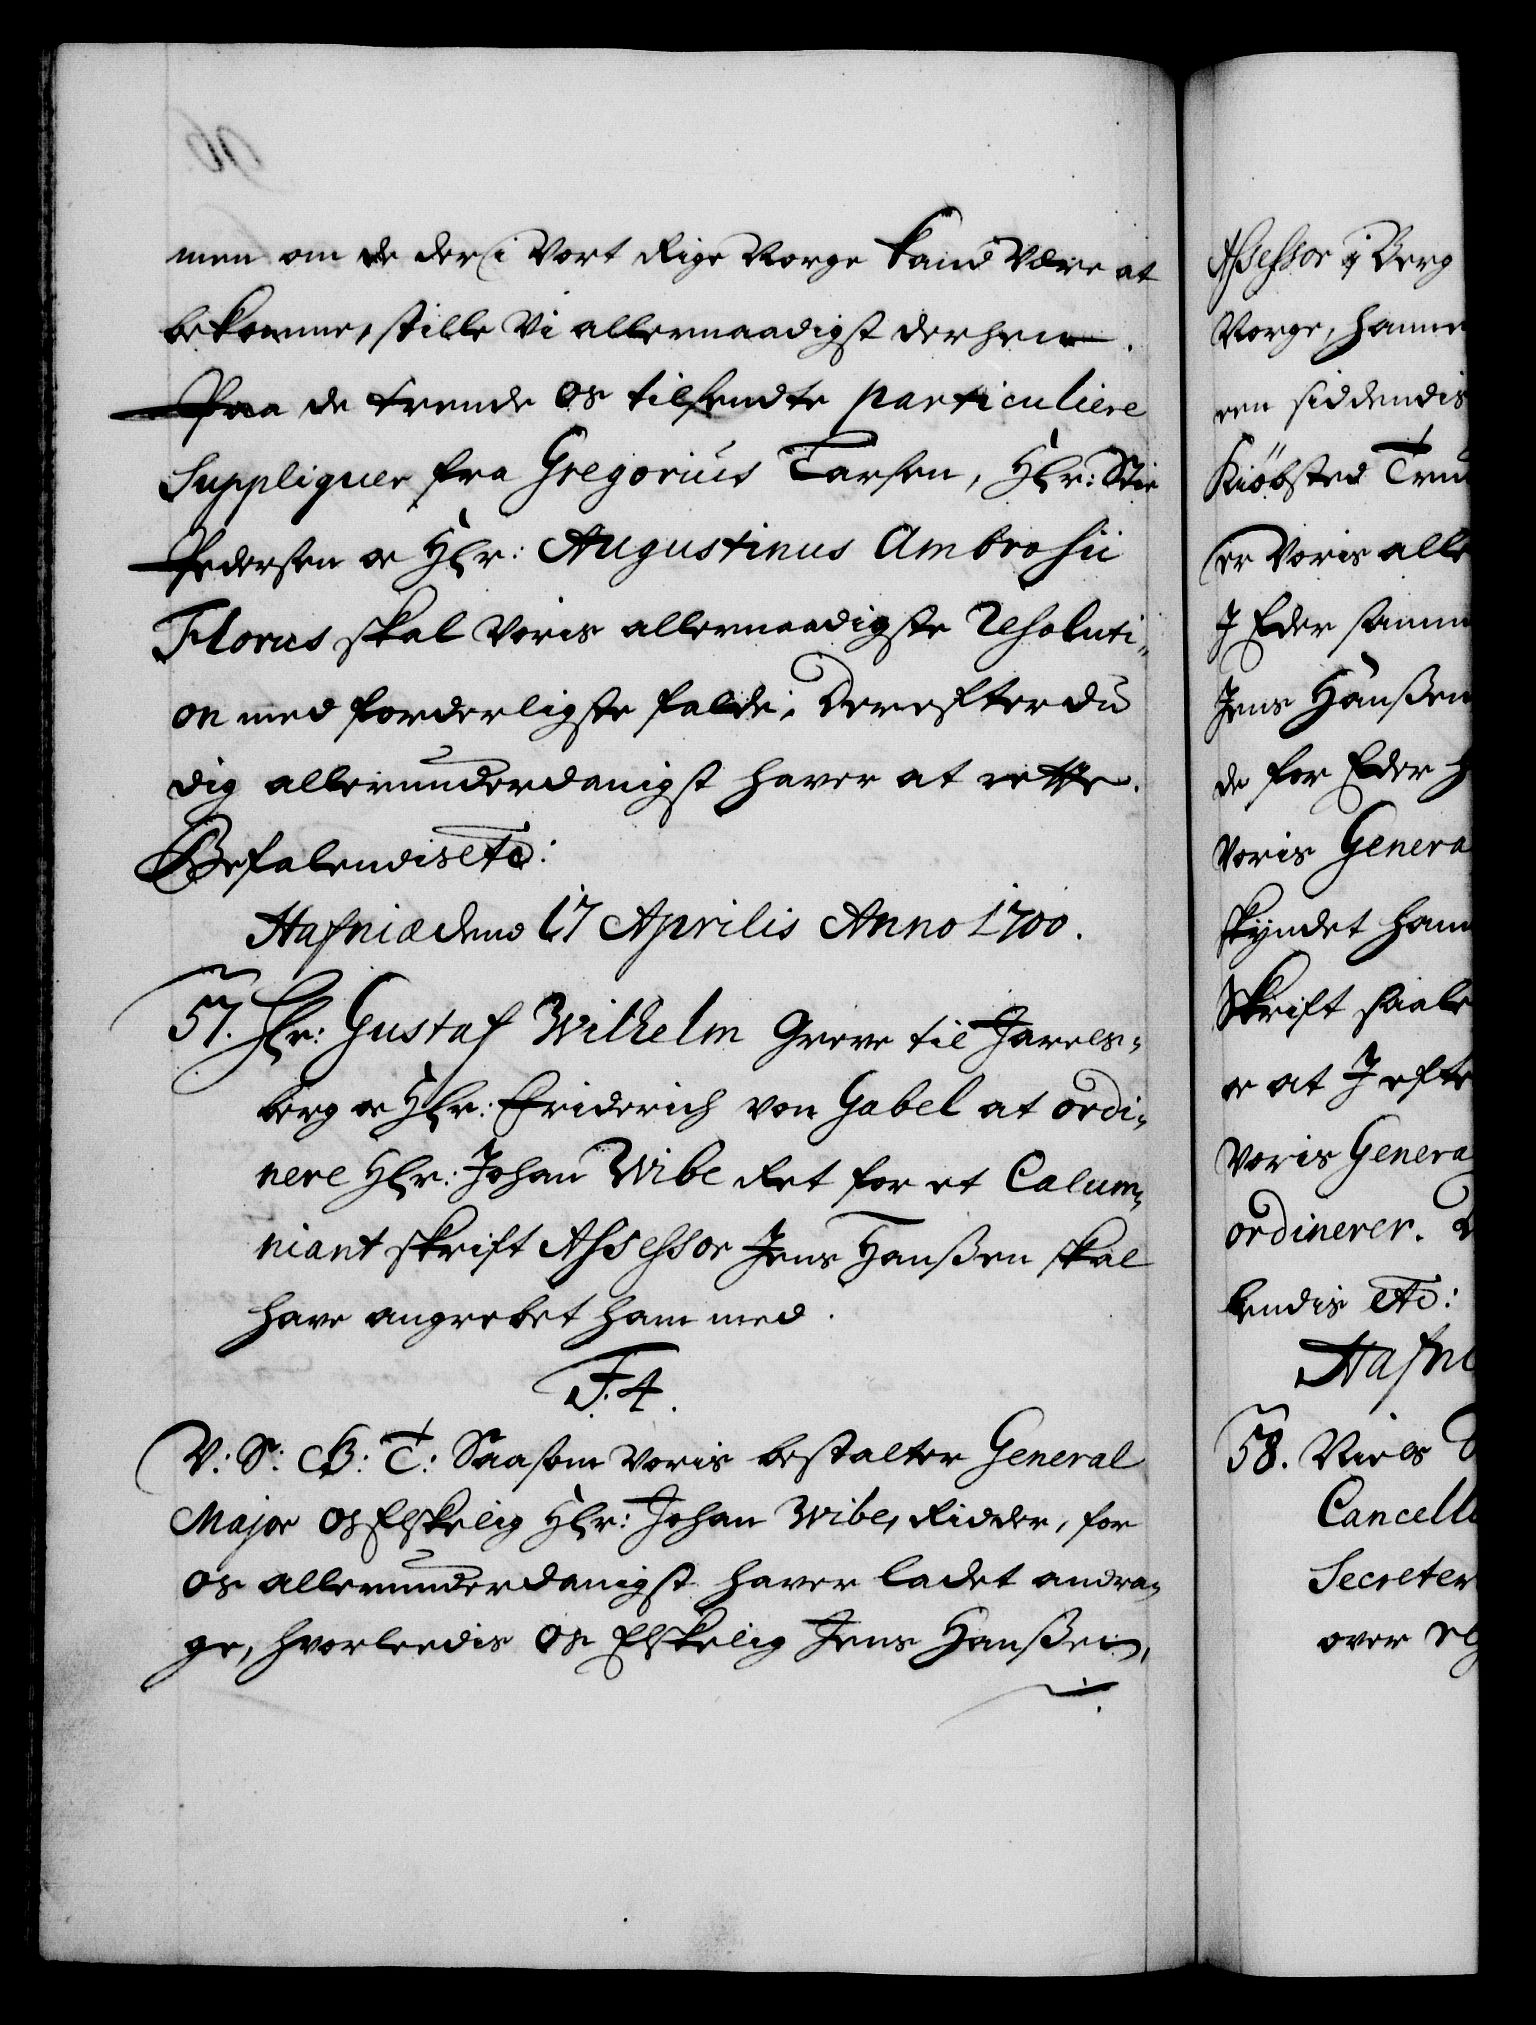 men om de der i Vort Rige Norge kand Være at
bekomme, stille Vi allernaadigst derhen.
Paa de trende os tilsendte particuliere
Suppliquer fra Gregorius Tarsen, Hr: Stie
Pedersen oc Hr: Augustinus Ambrosii
Florus skal Voris allernaadigste Resoluti-
on med forderligste falde. Derefter du
dig allerunderdanigst haver at rette.
Befalendis etc:
Hafniæ den 17 Aprilis Anno 1700.
57. Hr: Gustaf Wilhelm Greve til Jarels-
berg oc Hr: Friderich von Gabel at ordi-
nere Hr: Johan Wibe Ret for et Calum-
niant skrift Assessor Jens Hanßen skal
have angrebet ham med.
F. 4.
V: S: G: T: Saasom Voris bestalter General
Major os Elskelig Hr: Johan Wibe, Ridder, for
os allerunderdanigst haver ladet andra-
ge, hvorledis os Elskelig Jens Hanßen,
Assessor i Berg
Norge, hanne
ren siddendis
Kiöbsted Tru
er Voris alle
J Eder samm
Jens Hanßen
de for Eder h
Voris Genera
skyndet ham
Skrift saale
oc at J efte
Voris Genera
ordinerer.
lendis etc:
Hafni
58. Niels
Cancelli
Secreter
over